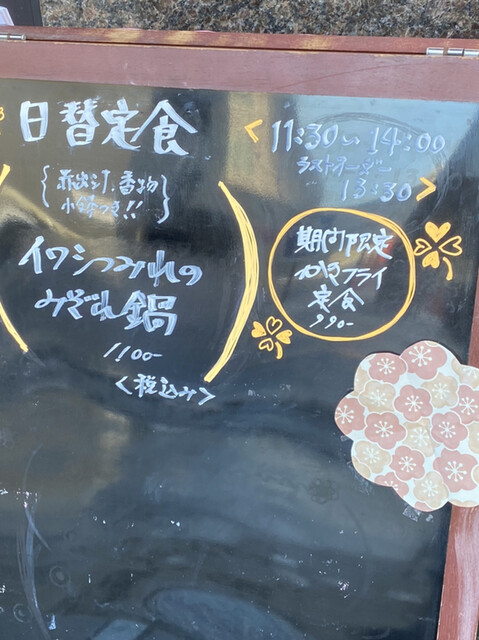 日替定食
< 11:30〜14:00
ラストオーダー
13:30 >
{赤出汁、香物
小鉢つき!!}
イワシつみれの
みぞれ鍋
1100-
<税込み>
期間限定
かきフライ
定食
990-